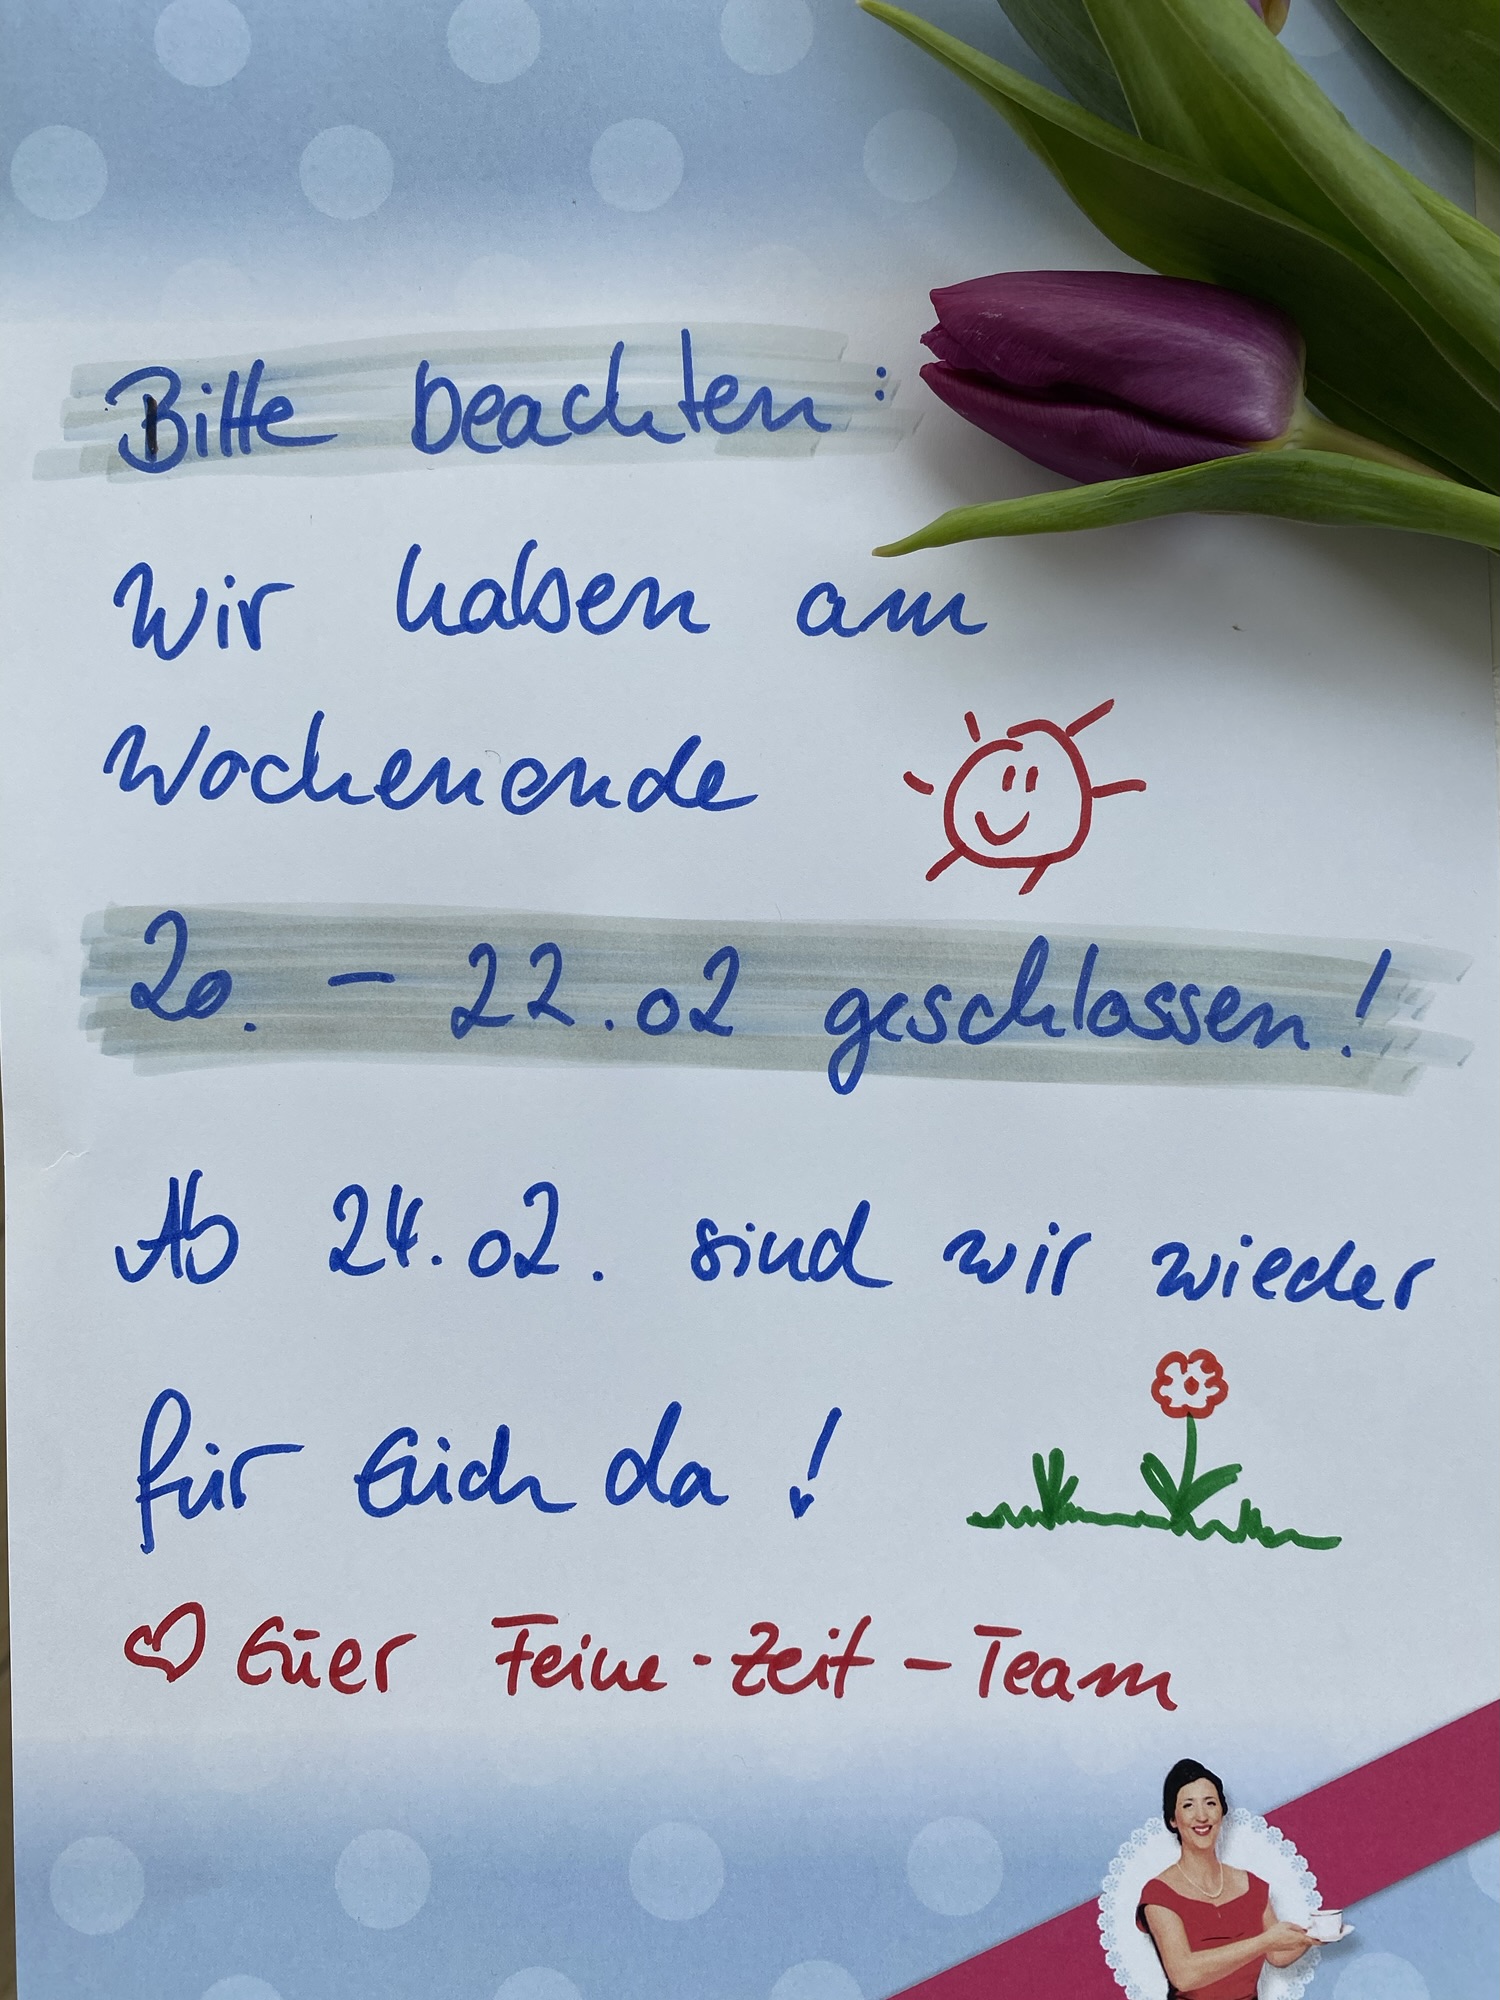 Bitte beachten:
Wir haben am
Wochenende
20. – 22.02 geschlossen!
Ab 24.02. sind wir wieder
für Euch da!
Euer Feine-Zeit-Team